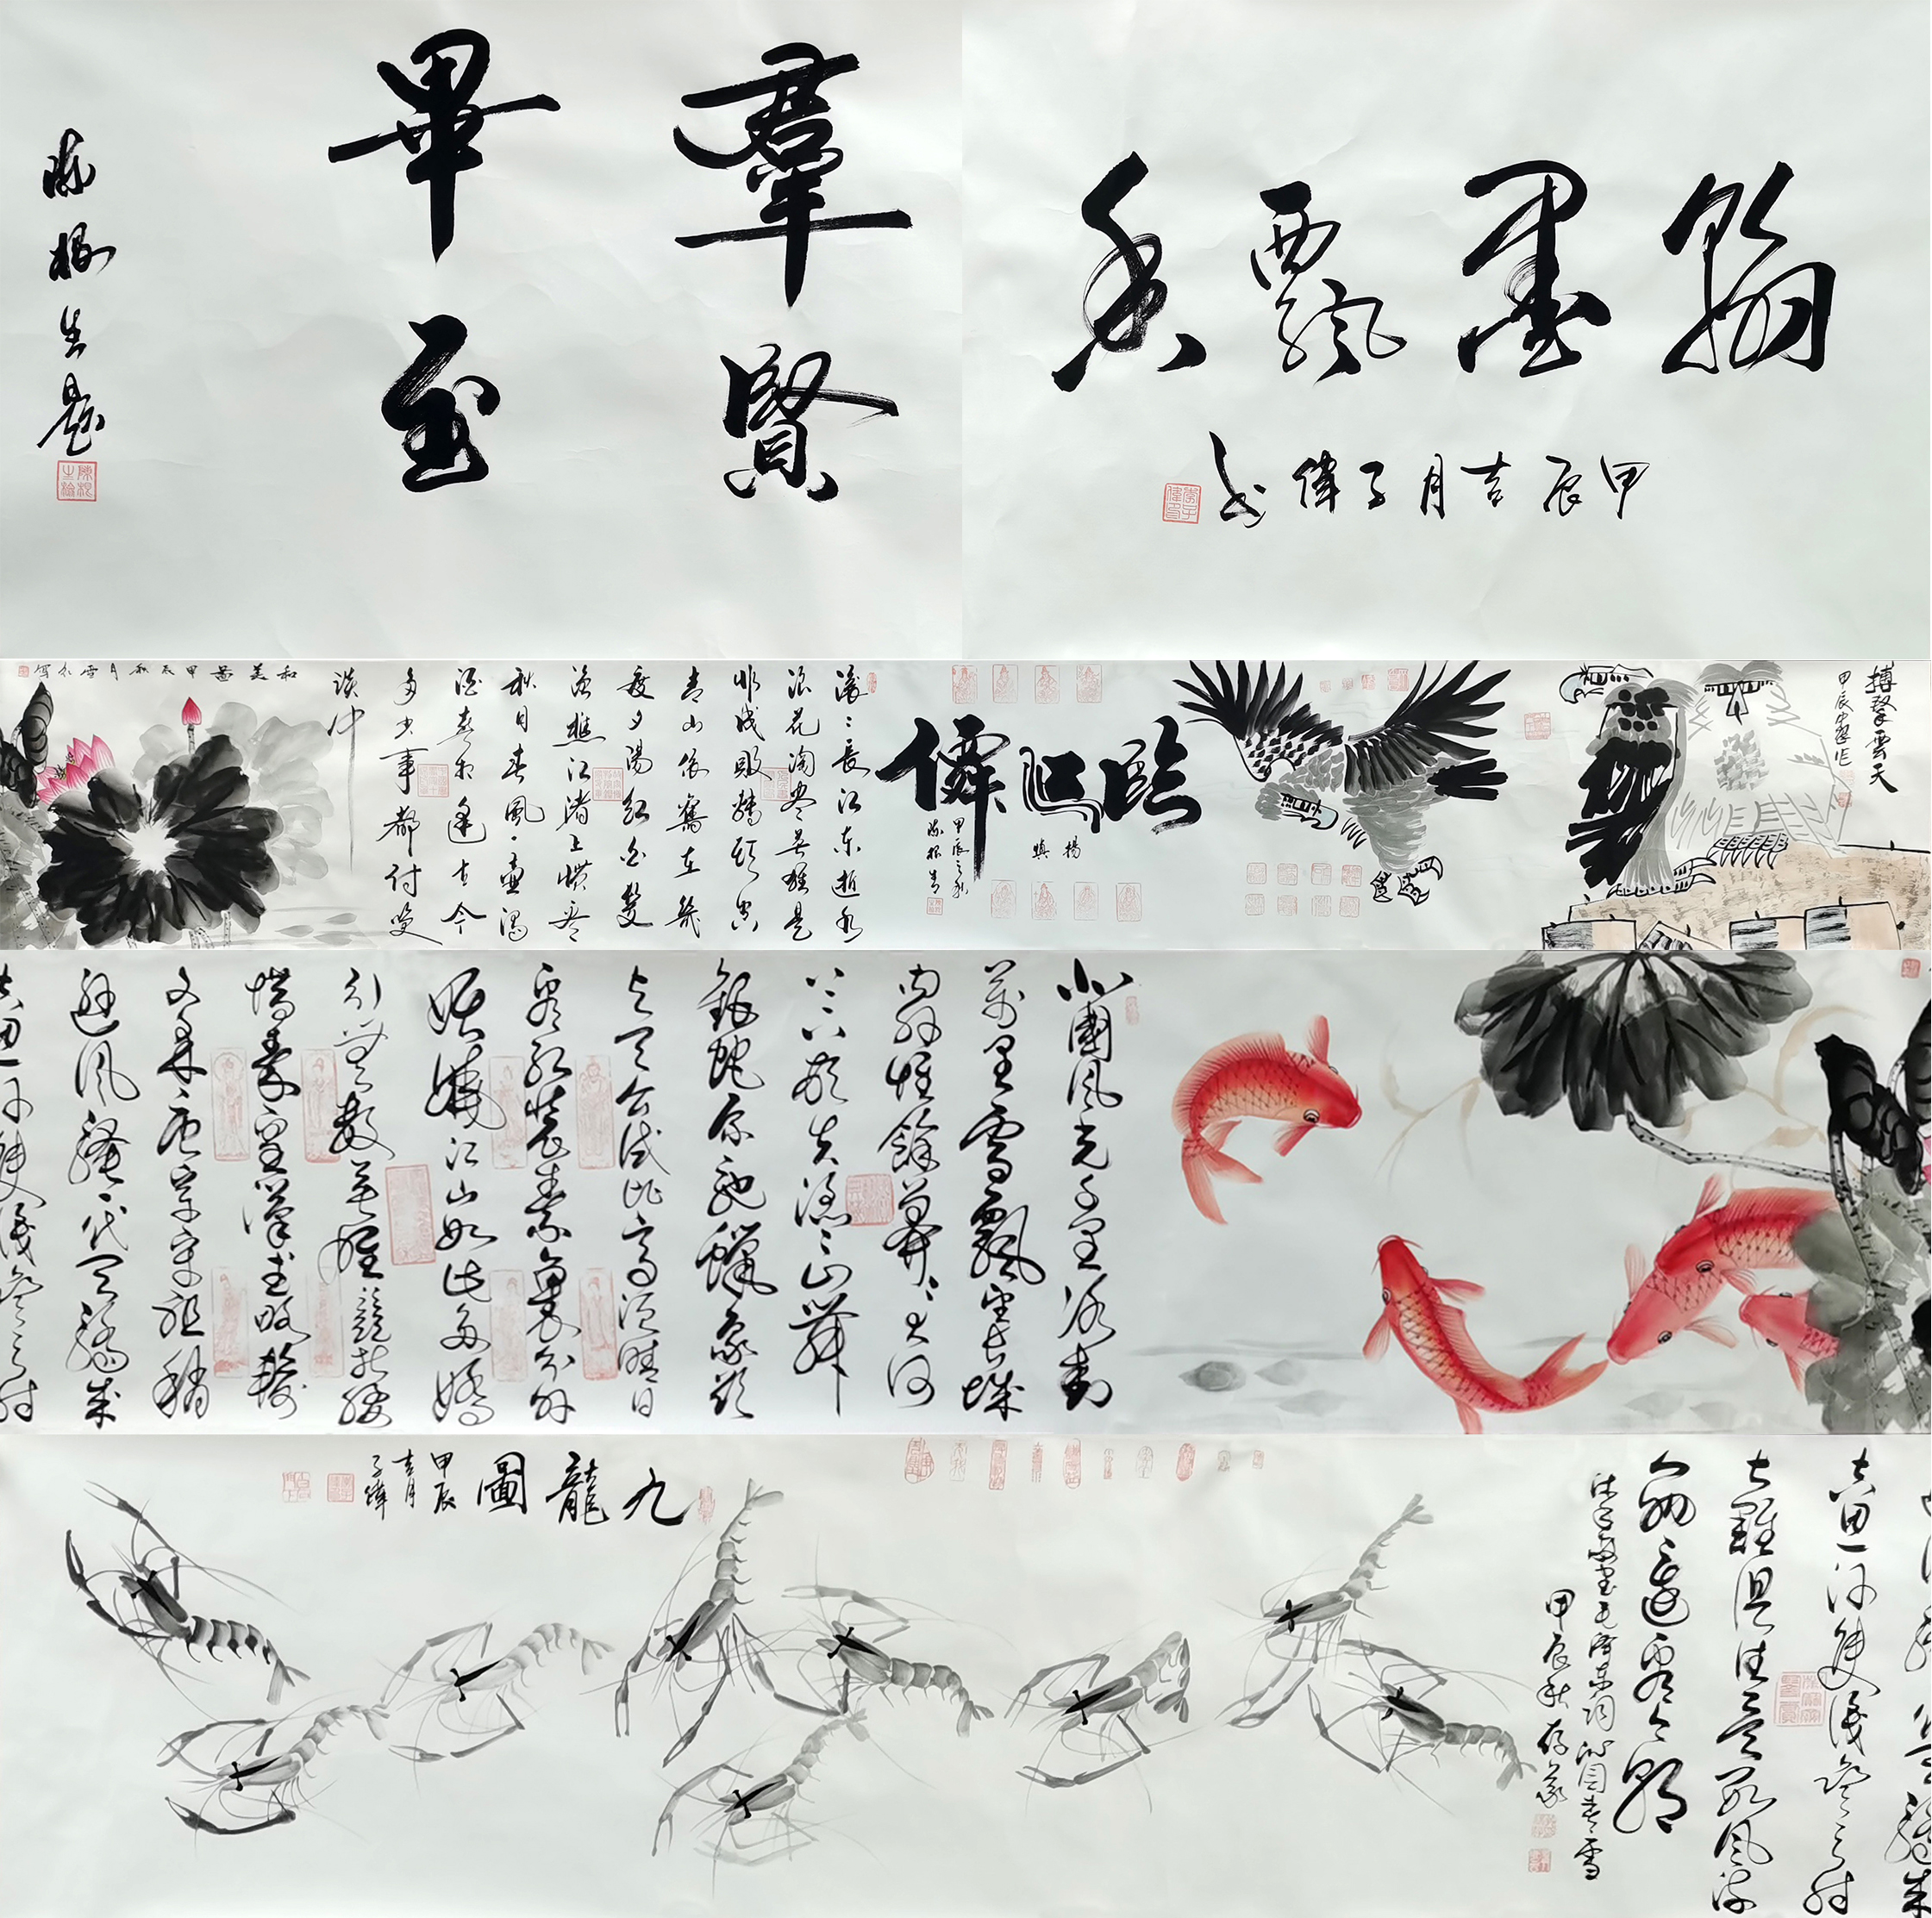 翰墨飄香
甲辰吉月子偉
羣賢畢至
陳根生題
搏擊雲天
甲辰
臨江僊
楊慎
甲辰之秋
陳根生
滚〻長江東逝水
浪花淘尽英雄是
非成敗轉頭空
青山依舊在幾
度夕陽紅白髮
渔樵江渚上惯看
秋月春風一壶濁
酒喜相逢古今
多少事都付笑
談中
和美圖甲辰秋月雪
北國風光千里冰封
萬里雪飄望長城
内外惟餘莽〻大河
上下頓失滔〻山舞
銀蛇原馳蠟象欲
與天公試比高須晴日
看紅裝素裹分外
妖嬈江山如此多嬌
引無數英雄競折腰
惜秦皇漢武略輸
文采唐宗宋祖稍
遜風騷一代天驕成
吉思汗只識彎弓射
大雕俱往矣數風流
人物還看今朝
沐手敬書毛澤東詞沁園春雪
甲辰秋存義
九龍圖
甲辰
吉月
子偉